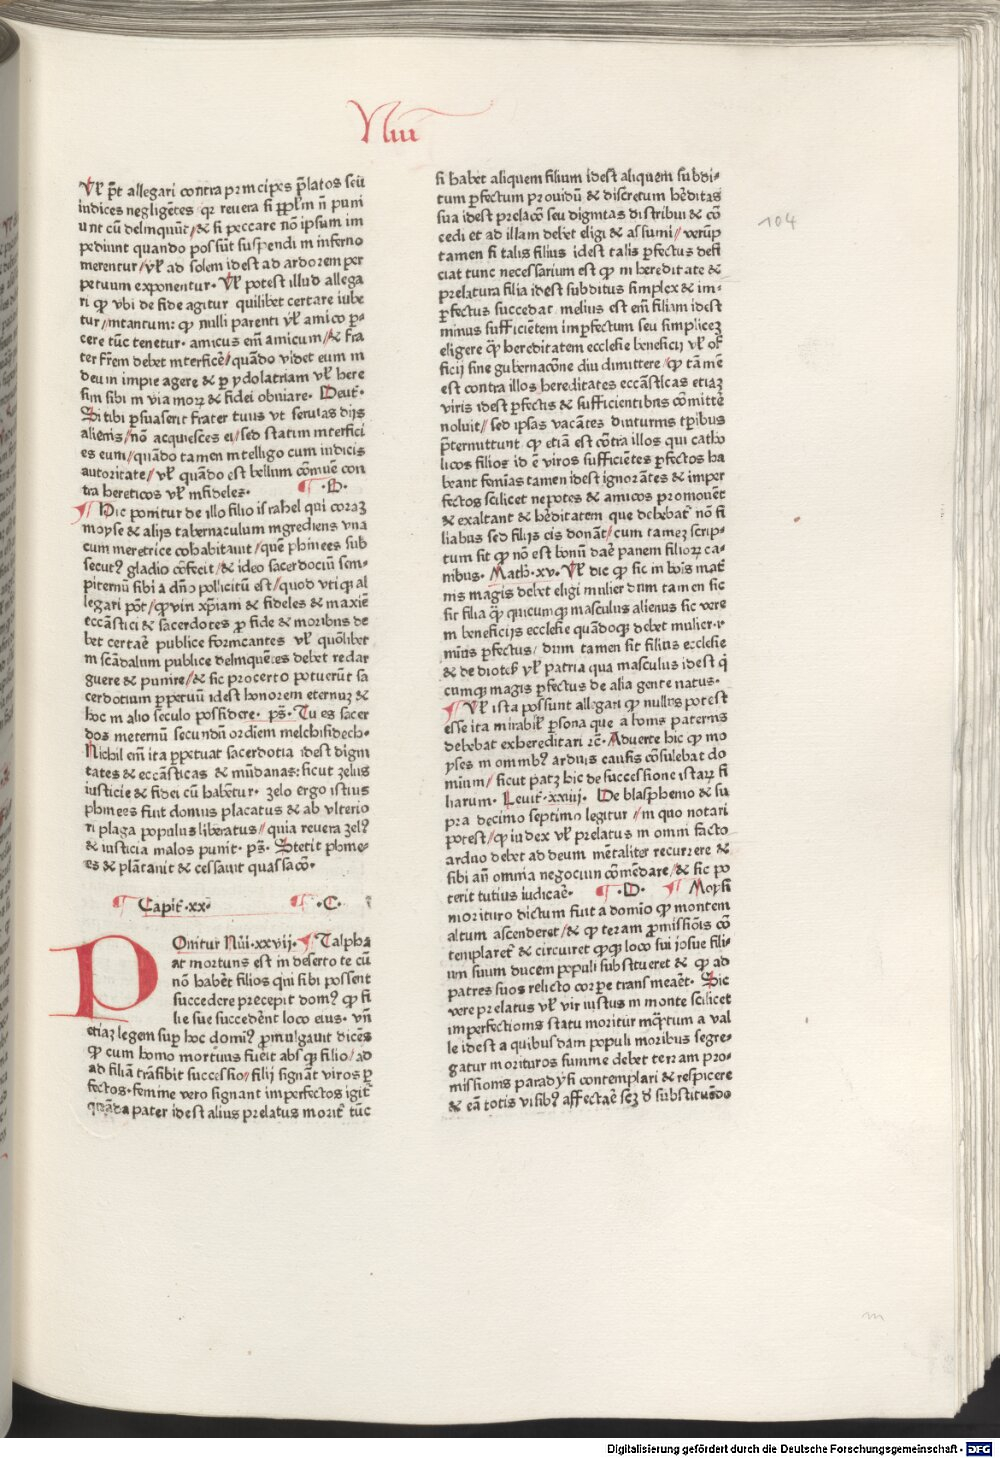 Nūi
Vel p̄t allegari contra principes p̄latos seu
iudices negligētes qr reuera si ppl̄m nō puni
unt cū delinquūt/& si peccare nō ipsum im
pediunt quando possūt suspendi in inferno
merentur/vl̄ ad solem idest ad ardorem per
petuum exponentur. Vl̄ potest illud allega
ri qp vbi de fide agitur quilibet certare iube
tur/intantum: qp nulli parenti vl̄ amico p̲
cere tūc tenetur. amicus em̄ amicum/& fra
ter fr̄em debet interficē/quādo videt eum in
deum impie agere & p ydolatriam vl̄ here
sim sibi in via morꝝ & fidei obuiare. Deut̄.
Si tibi p̲suaserit frater tuus vt seruias dijs
alienis/nō acquiesces ei/sed statim interfici
es eum/quādo tamen intelligo cum iudicis
autoritate/vl̄ quādo est bellum cōmūe con
tra hereticos vl̄ infideles. ¶ .B.
¶ Hic ponitur de illo filio israhel qui coraꝫ
moyse & alijs tabernaculum ingrediens vna
cum meretrice cohabitauit/quē phinees sub
secut9 gladio cōfecit/& ideo sacerdociū sem-
piternū sibi a dn̄o pollicitū est/quod vtiqꝫ al
legari pōt/qp viri xp̄iani & fideles & maxīe
ecc̄astici & sacerdotes p fide & moribus de
bet certaē publice fornicantes vl̄ quōlibet
in scādalum publice delinquētes debet redar
guere & punire/& sic procerto potuerūt sa
cerdotium p̲petuū idest honorem eternuꝫ &
hoc in alio seculo possidere. ps̄. Tu es sacer
dos ineternū secundū ordiem melchisidech.
Nichil em̄ ita p̲petuat sacerdotia idest digni
tates & ecc̄asticas & mūdanas: sicut zelus
iusticie & fidei cū habetur. zelo ergo istius
phinees sunt domus placatus & ab vlterio
ri plaga populus liberatus/quia reuera zel9
& iusticia malos punit. ps̄. Stetit phine-
es & plācauit & cessauit quassacō.
¶ Capit̄.xx. ¶ .C.
POnitur Nūi.xxvij. ¶ Talpha
at mortuus est in deserto te cū
nō habēt filios qui sibi possent
succedere precepit dom9 qp fi
lie sue succedēnt loco eius. vn̄
etiaꝫ legem sup hoc domi9 p̲mulgauit dicēs
qp cum homo mortuus fueit absqꝫ filio/ad
ad filiā trāsibit successio/filij signāt viros p̲
fectos. femine vero signant imperfectos igit̄
quādā pater idest alius prelatus morit̄ tūc
si habet aliquem filium idest aliquem subdi-
tum p̲fectum prouidū & discretum hēditas
sua idest prelacō seu dignitas distribui & cō
cedi et ad illam debet eligi & assumi/verūp
tamen si talis filius idest talis p̲fectus defi
ciat tunc necessarium est qp in hereditate &
prelatura filia idest subditus simplex & im-
p̲fectus succedat. melius est em̄ filiam idest
minus sufficiētem imperfectum seu simpliceꝫ
eligere q̄ꝫ hereditatem ecclesie beneficij vl̄ of
ficij sine gubernacōne diu dimittere/qp tamē
est contra illos hereditates ecc̄asticas etiaꝫ
viris idest p̲fectis & sufficientibus cōmittē
noluit/sed ipsas vacātes diuturnis tp̄ibus
p̄termittunt qp etiā est cōtra illos qui catho
licos filios id ē viros sufficiētes p̲fectos ha
beant feminas tamen idest ignorātes & imper
fectos scilicet nepotes & amicos promouēt
& exaltant & hēditatem que debebat̄ nō fi
liabus sed filijs eis donāt/cum tameꝫ scrip-
tum sit qp nō est bonū daē panem filiorꝫ ca-
nibus. Math.xv. Vl̄ dic qp sic in bōis mat̄
nis magis debet eligi mulier dum tamen sic
sit filia q̄ꝫ quicumqꝫ masculus alienus sic vere
in beneficijs ecclesie quādoqꝫ debet mulier.i.
min9 p̲fectus/dum tamen sit filius ecclesie
& de diotes̄ vl̄ patria qua masculus idest q̄
cumqꝫ magis p̲fectus de alia gente natus.
¶ Vl̄ ista possunt allegari qp nullus potest
esse ita mirabil̄ p̲sona que a bonis paternis
debebat exhereditari rc̄. Aduerte hic qp mo
yses in ommb9 arduis causis cōsulebat do
minum/sicut patꝫ hic de successione istarꝫ fi
liarum. Leuit̄.xxiiij. De blasphemo & su
pra decimo septimo legitur/in quo notari
potest/qp iudex vl̄ prelatus in omni facto
arduo debet ad deum mētaliter recurrere &
sibi an̄ omnia negociun cōmēdare/& sic po
terit tutius iudicaē. ¶ .D. ¶ Moysi
morituro dictum fuit a domīo qp montem
altum ascenderet/& qp terram p̲missiōis cō
templaret̄ & circuiret qpqꝫ loco sui iosue fili-
um suum ducem populi substitueret & qp ad
patres suos relicto corpe transmeaēt. Sic
vere prelatus vl̄ vir iustus in monte scilicet
imperfectionis statu moritur inq̄ptum a val
le idest a quibusdam populi moribus segre-
gatur morituros summe debet terram pro-
missionis paradysi contemplari & respicere
& eā totis visib9 affectaē seꝫ d̄ substituēdo
104
m
Digitalisierung gefördert durch die Deutsche Forschungsgemeinschaft - DFG